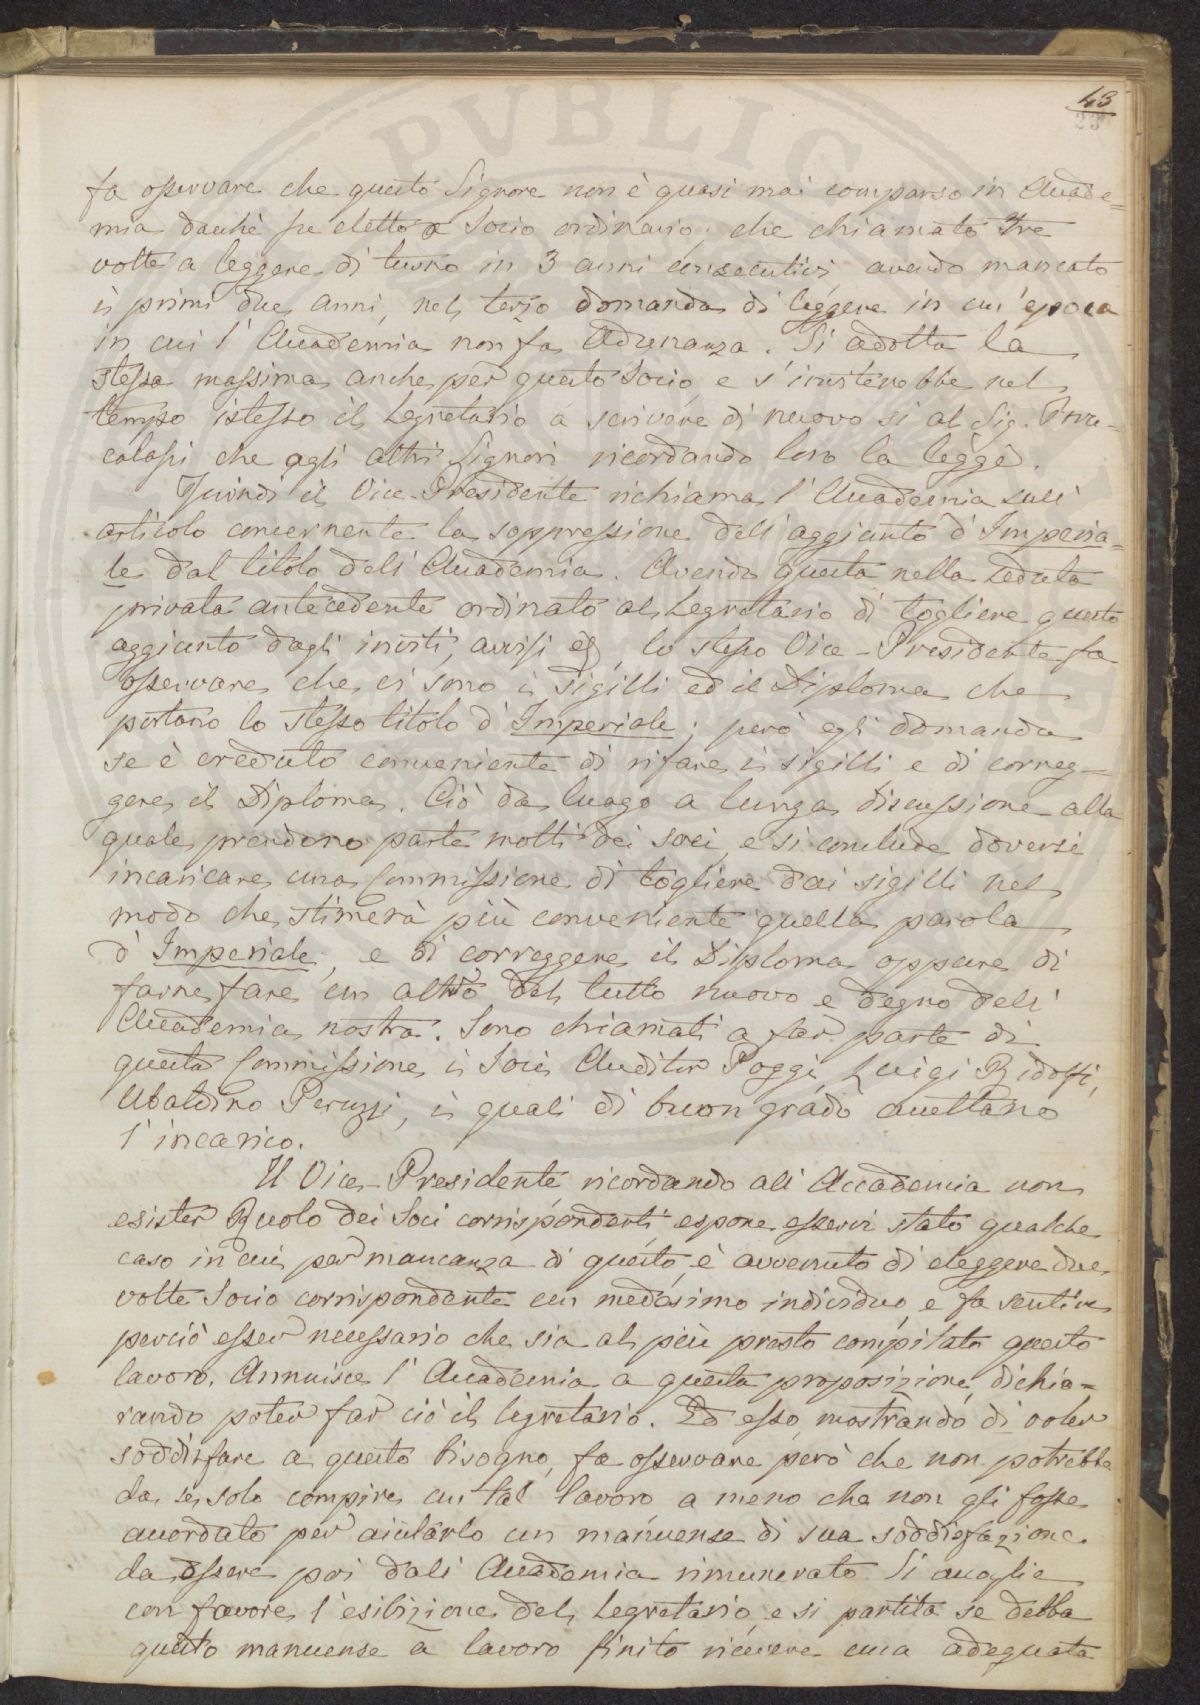 43
23
fa osservare che questo Signore non è quasi mai comparso in Accade=
mia dacchè fu eletto a Socio ordinario; che chiamato tre
volte a leggere di turno in 3 anni consecutivi avendo mancato
i primi due anni, nel terzo domanda di leggere in un'epoca
in cui l'Accademia non fa Adunanza. Si adotta la
stessa massima anche per questo Socio e s'inviterebbe nel
tempo istesso il Segretario a scrivere di nuovo sì al Sig.
calassi che agli altri Signori ricordando loro la legge.
Quindi il Vice-Presidente richiama l'Accademia sull'
articolo concernente la soppressione dell'aggiunto d'Imperia=
le dal titolo dell'Accademia. Avendo questa nella seduta
privata antecedente ordinato al Segretario di togliere questo
aggiunto dagli inviti, avvisi ec, lo stesso Vice-Presidente fa
osservare che ci sono i sigilli ed il Diploma che
portano lo stesso titolo d'Imperiale; però egli domanda
se è creduto conveniente di rifare i sigilli e di correg-
gere il Diploma. Ciò da luogo a lunga discussione alla
quale prendono parte molti dei soci, e si conclude doversi
incaricare una Commissione di togliere dai sigilli nel
modo che stimerà più conveniente quella parola
d'Imperiale, e di correggere il Diploma oppure di
farne fare un altro del tutto nuovo e degno dell'
Accademia nostra. Sono chiamati a far parte di
questa Commissione i Soci Auditor Poggi, Luigi Ridolfi,
Ubaldino Peruzzi, i quali di buon grado accettano
l'incarico.
Il Vice-Presidente ricordando all'Accademia non
esister Ruolo dei Soci corrispondenti espone esservi stato qualche
caso in cui per mancanza di questo è avvenuto di eleggere due
volte Socio corrispondente un medesimo individuo e fa sentire
perciò esser necessario che sia al più presto compilato questo
lavoro. Annuisce l'Accademia a questa proposizione dichia=
rando poter far ciò il Segretario. Ed esso mostrando di voler
soddisfare a questo bisogno, fa osservare però che non potrebbe
da se solo compire un tal lavoro a meno che non gli fosse
accordato per aiutarlo un manuense di sua soddisfazione
da essere poi dall'Accademia rimunerato. Si accoglie
con favore l'esibizione del Segretario e si partita se debba
questo manuense a lavoro finito ricevere una adeguata